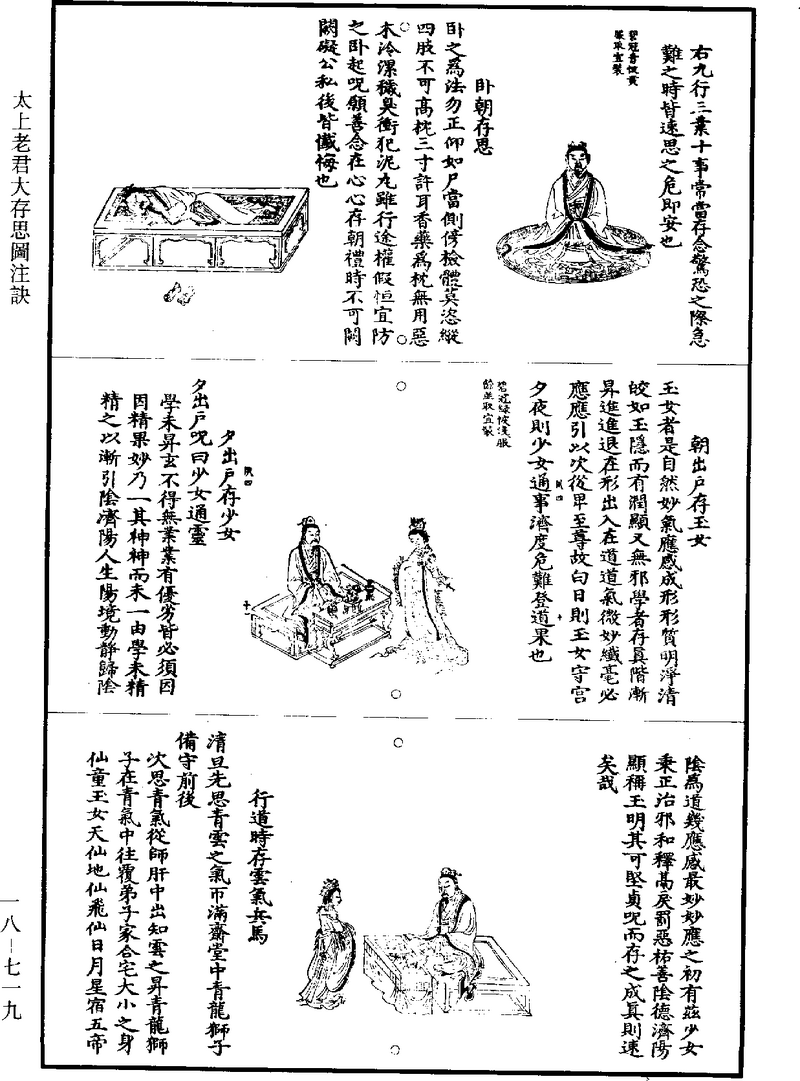 右九行三業十事常當存念驚恐之際急
難之時皆速思之危即安也
碧冠青帔黃
裳取宜裝
臥朝存思
臥之爲法勿正仰如尸當側傍檢體莫恣縱
四肢不可高枕三寸許耳香藥爲枕無用惡
木泠漯穢臭衝犯泥丸雖行途權假恒宜防
之臥起呪願善念在心心存朝禮時不可闕
闕礙公私後皆懺悔也
朝出戶存玉女
玉女者是自然妙氣應感成形形質明淨清
皎如玉隱而有潤顯又無邪學者存真階漸
昇進進退在形出入在道道氣微妙纖毫必
應應引以次從卑至尊故白日則玉女守宮
夕夜則少女通事濟度危難登道果也
碧冠綠帔淺服
餘並取宜裝
夕出戶存少女
夕出戶呪曰少女通靈
學未昇玄不得無業業有優劣皆必須因
因精果妙乃一其神神而未一由學未精
精之以漸引陰濟陽人生陽境動靜歸陰
陰爲道幾應感最妙妙應之初有茲少女
秉正治邪和釋萬戾罰惡祐善陰德濟陽
顯稱玉明其可堅貞呪而存之成真則速
矣哉
行道時存雲氣兵馬
清旦先思青雲之氣帀滿齋堂中青龍獅子
備守前後
次思青氣從師肝中出如雲之昇青龍獅
子在青氣中往覆弟子家合宅大小之身
仙童玉女天仙地仙飛仙日月星宿五帝
太上老君大存思圖注訣
一八－七一九